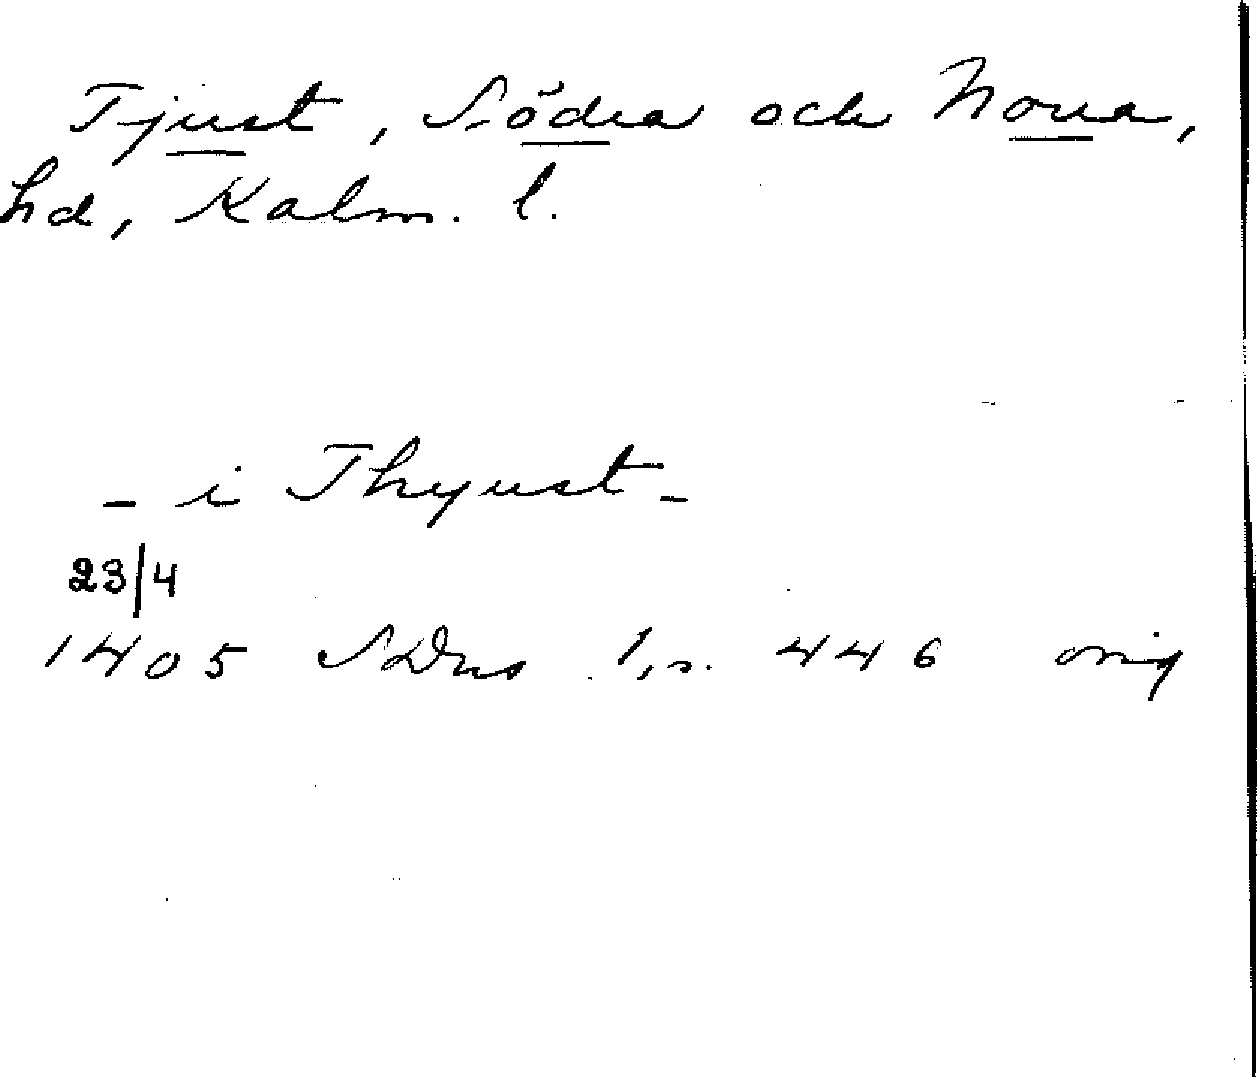 Tjust, Södra och Norra,
hd, Kalm. l.
- i Thyust -
23/4
1405 SDns 1, s. 446 orig